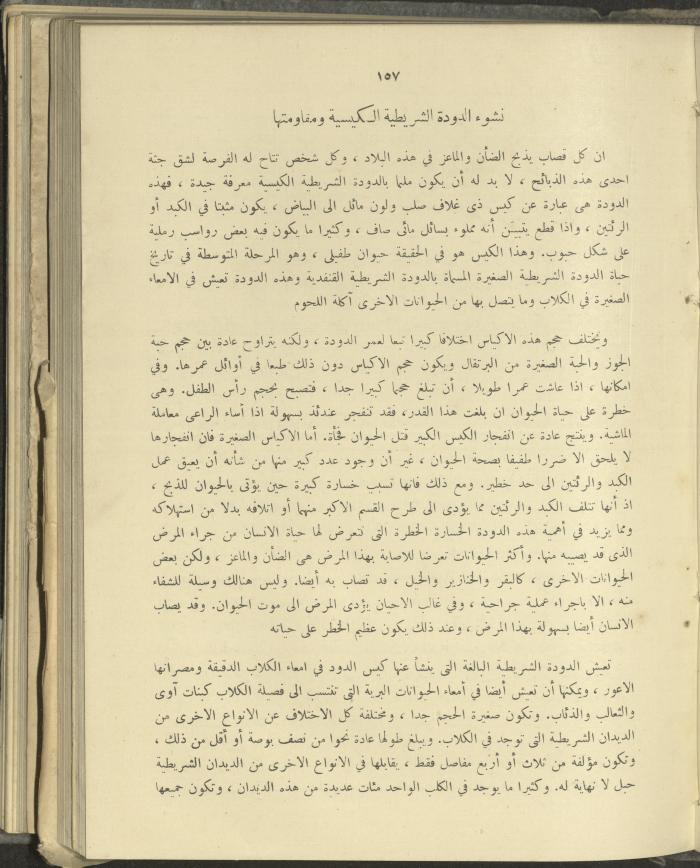 ١٥٧
نشوء الدودة الشريطية الكيسية ومقاومتها
ان كل قصاب يذبح الضأن والماعز في هذه البلاد ، وكل شخص تتاح له الفرصة لشق جثة
احدى هذه الذبائح ، لا بد له أن يكون ملما بالدودة الشريطية الكيسية معرفة جيدة ، فهذه
الدودة هى عبارة عن كيس ذى غلاف صلب ولون مائل الى البياض ، يكون مثبتا في الكبد أو
الرئتين ، واذا قطع يتبين أنه مملوء بسائل مائى صاف ، وكثيرا ما يكون فيه بعض رواسب رملية
على شكل حبوب. وهذا الكيس هو في الحقيقة حيوان طفيلى ، وهو المرحلة المتوسطة في تاريخ
حياة الدودة الشريطية الصغيرة المسماة بالدودة الشريطية القنفدية وهذه الدودة تعيش في الامعاء
الصغيرة في الكلاب وما يتصل بها من الحيوانات الاخرى آكلة اللحوم
ويختلف حجم هذه الاكياس اختلافا كبيرا تبعا لعمر الدودة ، ولكنه يتراوح عادة بين حجم حبة
الجوز والحبة الصغيرة من البرتقال ويكون حجم الاكياس دون ذلك طبعا في أوائل عمرها. وفي
امكانها ، اذا عاشت عمرا طويلا ، أن تبلغ حجما كبيرا جدا ، فتصبح بحجم رأس الطفل. وهى
خطرة على حياة الحيوان ان بلغت هذا القدر، فقد تنفجر عندئذ بسهولة اذا أساء الراعى معاملة
الماشية. وينتج عادة عن انفجار الكيس الكبير قتل الحيوان فجأة. أما الاكياس الصغيرة فان انفجارها
لا يلحق الا ضررا طفيفا بصحة الحيوان ، غير أن وجود عدد كبير منها من شأنه أن يعيق عمل
الكبد والرئتين الى حد خطير. ومع ذلك فانها تسبب خسارة كبيرة حين يؤتى بالحيوان للذبح ،
اذ أنها تتلف الكبد والرئتين مما يؤدى الى طرح القسم الاكبر منهما أو اتلافه بدلا من استهلاكه
ومما يزيد في أهمية هذه الدودة الخسارة الخطرة التى تتعرض لها حياة الانسان من جراء المرض
الذى قد يصيبه منها. وأكثر الحيوانات تعرضا للاصابة بهذا المرض هى الضأن والماعز ، ولكن بعض
الحيوانات الاخرى ، كالبقر والخنازير والخيل ، قد تصاب به أيضا. وليس هنالك وسيلة للشفاء
منه ، الا باجراء عملية جراحية ، وفي غالب الاحيان يؤدى المرض الى موت الحيوان. وقد يصاب
الانسان أيضا بسهولة بهذا المرض ، وعند ذلك يكون عظيم الخطر على حياته
تعيش الدودة الشريطية البالغة التى ينشأ عنها كيس الدود في امعاء الكلاب الدقيقة ومصرانها
الاعور ، ويمكنها أن تعيش أيضا في أمعاء الحيوانات البرية التى تنتسب الى فصيلة الكلاب كبنات آوى
والثعالب والذئاب. وتكون صغيرة الحجم جدا ، ومختلفة كل الاختلاف عن الانواع الاخرى من
الديدان الشريطية التى توجد في الكلاب. ويبلغ طولها عادة نحوا من نصف بوصة أو أقل من ذلك ،
وتكون مؤلفة من ثلاث أو أربع مفاصل فقط ، يقابلها في الانواع الاخرى من الديدان الشريطية
حبل لا نهاية له. وكثيرا ما يوجد في الكلب الواحد مئات عديدة من هذه الديدان ، وتكون جميعها